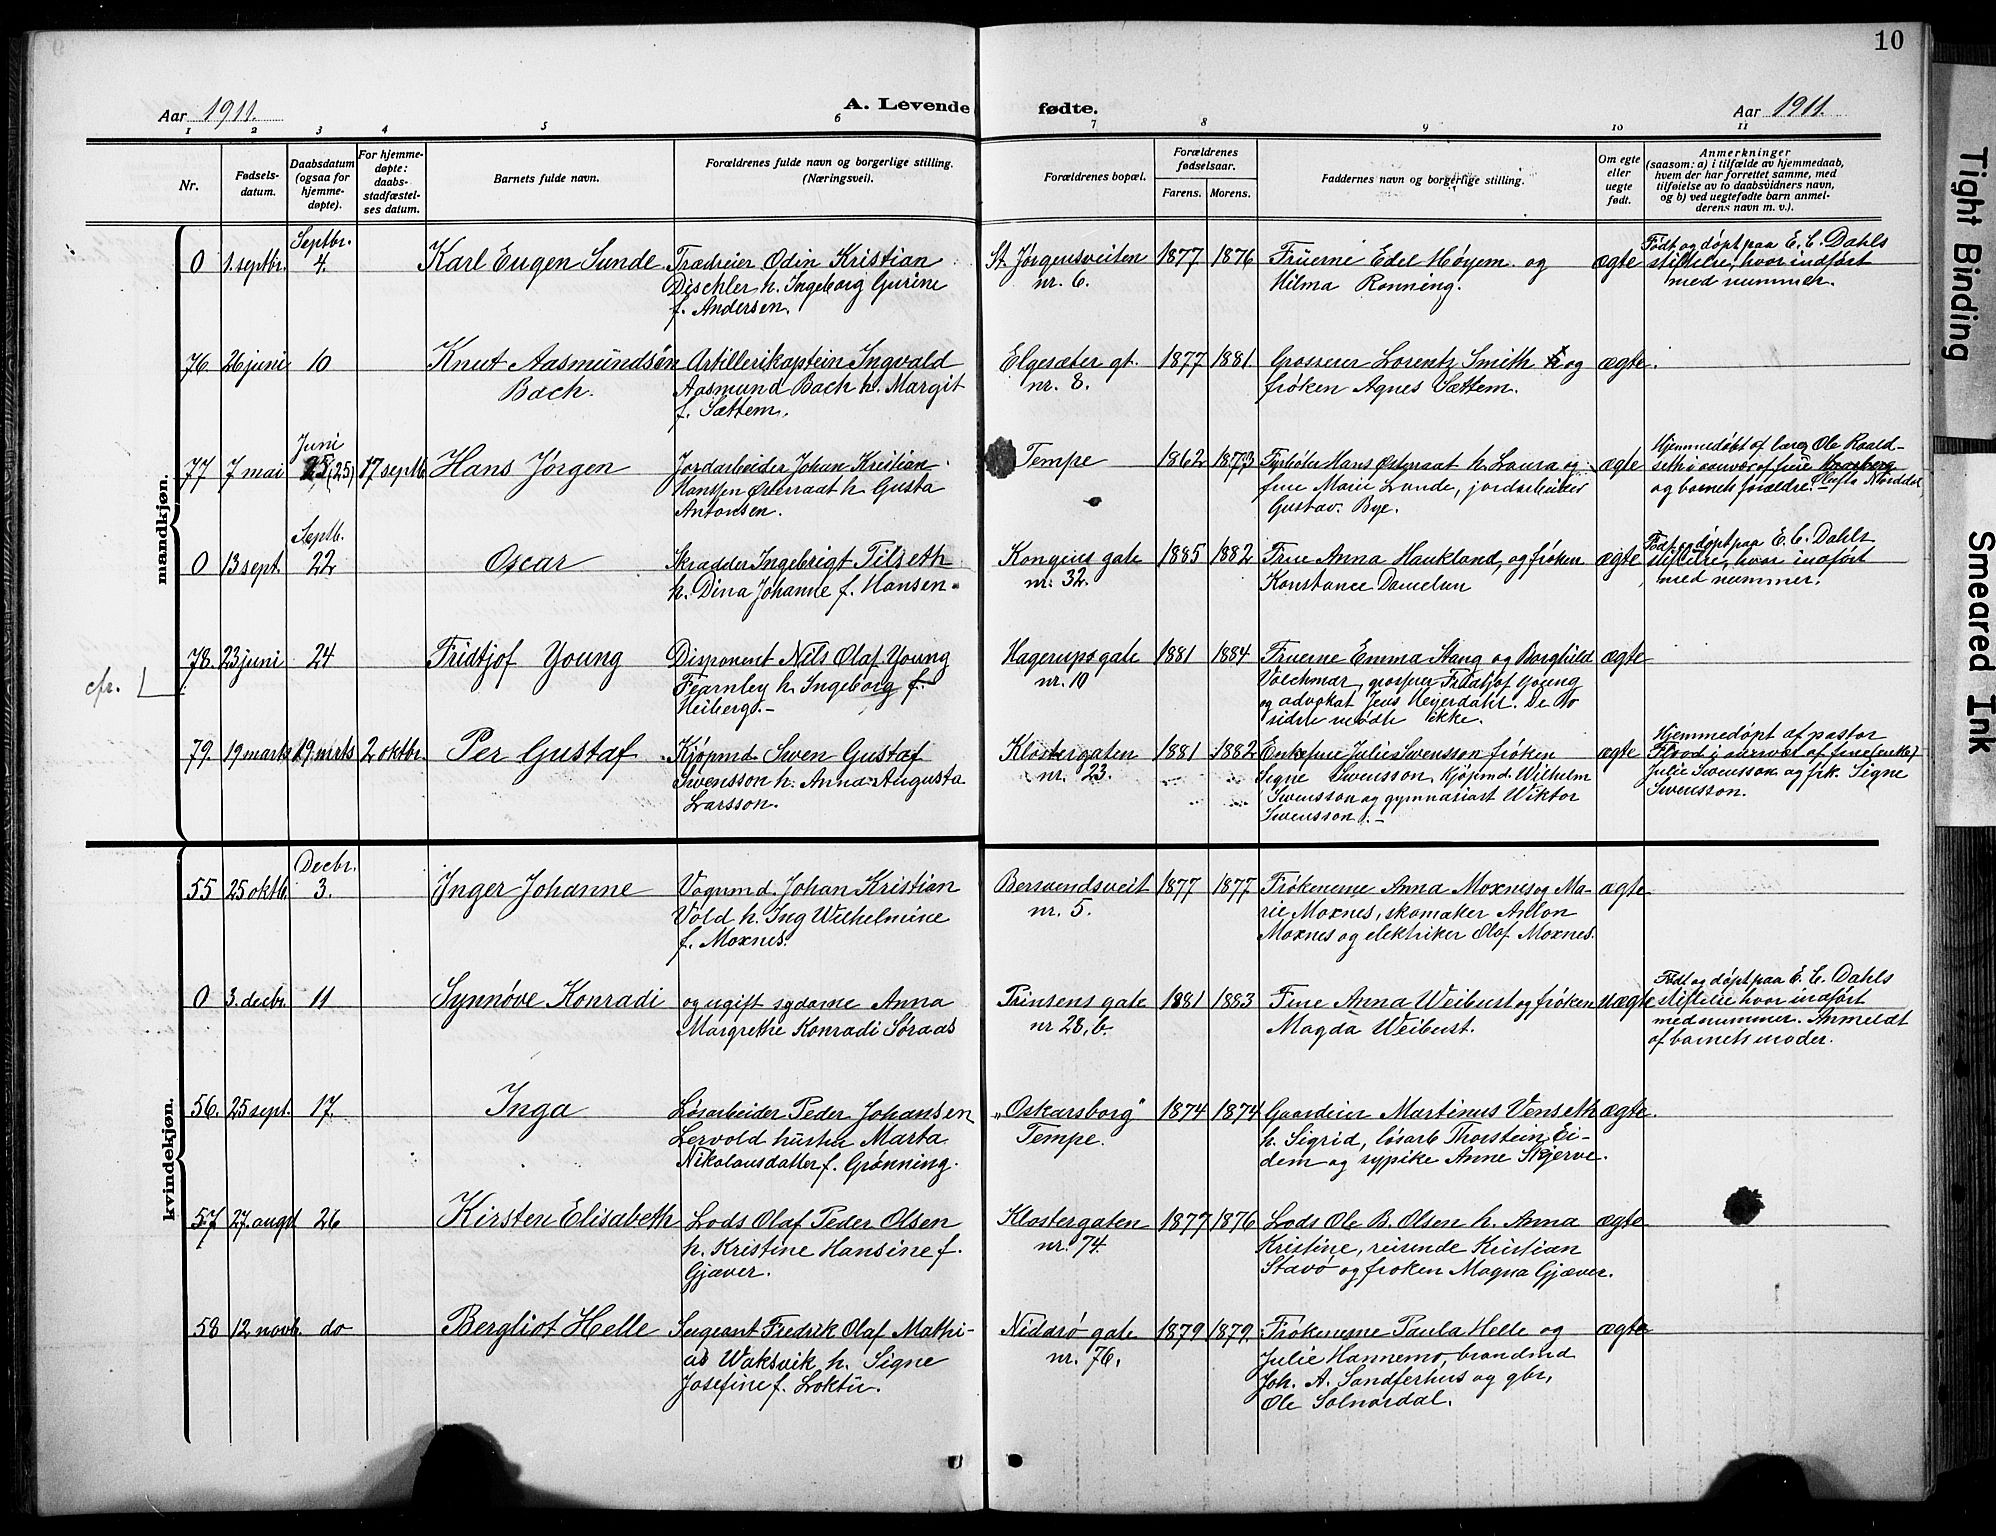 10
Aar 1911. A. Levende fødte. Aar 1911.
1 2 3 4 5 6 7 8 9 10 11
Nr.
Fødsels-
datum.
Daabsdatum
(ogsaa for
hjemme-
døpte).
For hjemme-
døpte:
daabs-
stadfæstel-
ses datum.
Barnets fulde navn.
Forældrenes fulde navn og borgerlige stilling.
(Næringsvei).
Forældrenes bopæl.
Forældrenes
fødselsaar.
Farens. Morens.
Faddernes navn og borgerlige stilling.
Om egte
eller
uegte
født.
Anmerkninger
(saasom: a) i tilfælde av hjemmedaab,
hvem der har forrettet samme, med
tilføielse av to daabsvidners navn,
og b) ved uegtefødte barn anmel-
derens navn m. v.).
mandkjøn.
Septbr.
0 1. septbr. 4. Karl Eugen Sunde
Odin Kristian
Dischler h. Ingeborg Gurine
f. Andersen.
St. Jørgensveiten
nr. 6.
1877 1876
Fruerne Edel Høyem og
Hilma Rønning.
ægte
Født og døpt paa E. C. Dahls
stiftelse, hvor indført
med nummer.
76. 26 juni 10 Knut Aasmundsøn
Bach.
Artillerikaptein Ingvald
Aasmund Bach h. Margit
f. Sættem.
Elgesæter gt.
nr. 8.
1877 1881
Grosserer Lorentz Smith og
frøken Agnes Sættem.
ægte
Juni
77 7 mai 25 (25) 17 septb. Hans Jørgen
Jordarbeider Johan Kristian
Hanssen Østeraat h. Gusta
Antonsen.
Tempe
1862 1873
Fyrbøter Hans Østeraat h. Laura og
frue Marie Lunde, jordarbeider
Gustav Bye.
ægte
Hjemmedøbt af lærer Ole Roald-
seth i nærvær af frue
og barnets forældre. Olufta Norddal,
Septb.
0 13 sept. 22 Oscar
Skrædder Ingebrigt Tilseth
h. Dina Johanne f. Hansen.
Kongens gate
nr. 32.
1885 1882
Frue Anna Haukland, og frøken
Konstance Danielsen
ægte
Født og døpt paa E. C. Dahls
stiftelse, hvor indført
med nummer.
cfr.
78. 23 juni 24 Fridtjof Young
Disponent Nils Olaf Young
Fearnley h. Ingeborg f.
Heiberg.-
Hagerups gate
nr. 10
1881 1884
Fruerne Emma Stang og Borghild
Volckmar, grosserer Fridtjof Young
og advokat Jens Heyerdahl. De to
sidste mødte ikke.
ægte
79. 19 marts 19. marts 2 oktbr. Per Gustaf
Kjøpmd. Sven Gustaf
Svensson h. Anna Augusta
Larsson.
Klostergaten
nr. 23.
1881 1882
Enkefrue Julie Svensson, frøken
Signe Svensson, kjøpmd. Wilhelm
Svensson og gymnasiast Wiktor
Svensson.-
ægte
Hjemmedøpt af pastor
Flood i nærvær af frue (enke)
Julie Svensson og frk. Signe
Svensson.
kvindekjøn.
Decbr.
55 25 oktb. 3. Inger Johanne
Vognmd. Johan Kristian
Vold h. Ing Wilhelmine
f. Moxnes.
Bersvendsveit
nr. 5.
1877 1877
Frøkenerne Anna Moxnes og Ma-
rie Moxnes, skomaker Anton
Moxnes og elektriker Olaf Moxnes.
ægte
0 3. decbr. 11 Synnøve Konradi
og ugift sydame Anna
Margrethe Konradi Søraas
Prinsens gate
nr 28, b.
1881 1883
Frue Anna Weibust og frøken
Magda Weibust.
uægte
Født og døpt paa E. C. Dahls
stiftelse hvor indført
med nummer. Anmeldt
af barnets moder.
56. 25 sept. 17. Inga
Løsarbeider Peder Johansen
Lervold hustru Marta
Nikolausdatter f. Grønning.
„Oskarsborg"
Tempe.
1874 1874
Gaardeier Martinus Venseth
h. Sigrid, løsarb Thorstein Ei-
dem og sypike Anne Skjerve.
ægte.
57 27. augst 26 Kirsten Elisabeth
Lods Olaf Peder Olsen
h. Kristine Hansine f.
Gjæver.
Klostergaten
nr. 74.
1877 1876
Lods Ole B. Olsen h. Anna
Kristine, reisende Kristian
Stavø og frøken Magna Gjæver.
ægte
58 12 novb. do Bergliot Helle
Sergeant Fredrik Olaf Mathi-
as Waksvik h. Signe
Josefine f. Loktu.
Niddrø gate
nr. 76.
1879 1879.
Frøkenerne Paula Helle og
Julie Hannemo, brandmd
Joh. A. Sandferhus og gbr.
Ole Solnørdal.
ægte
Tight Binding
Smeared Ink